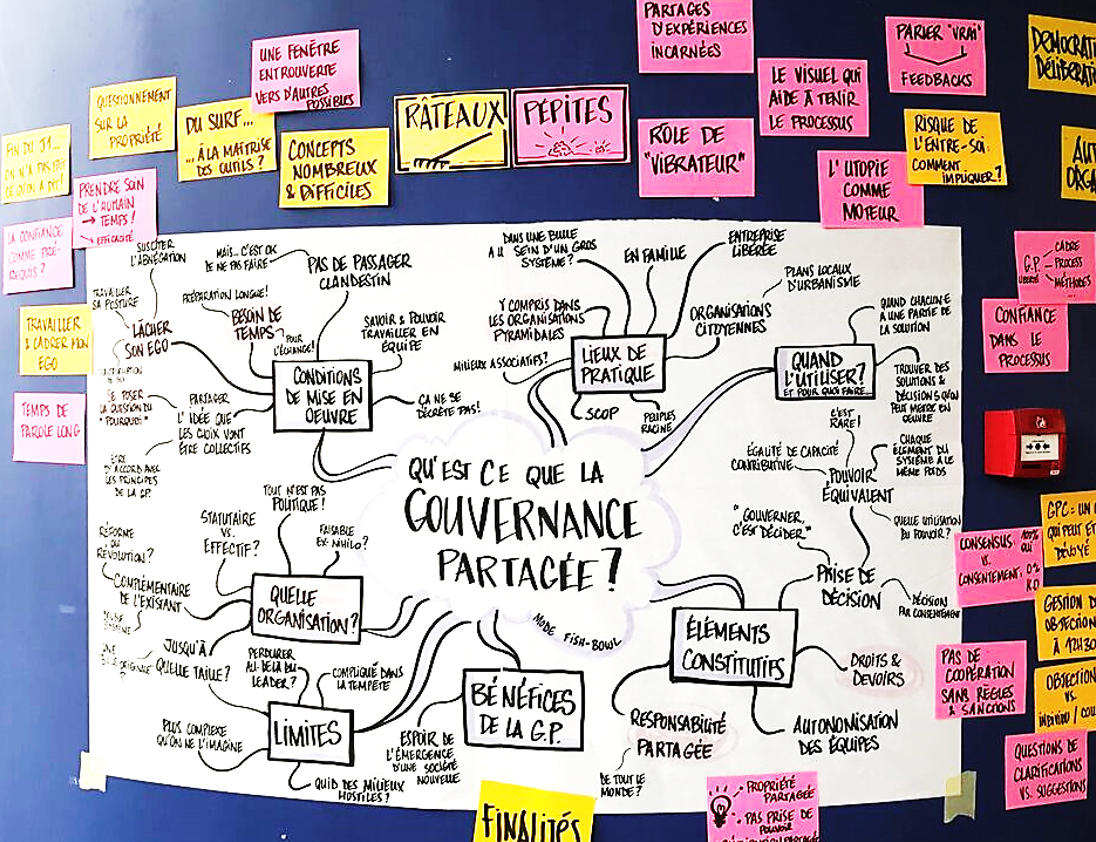 PARTAGES
D'EXPÉRIENCES
INCARNÉES
PARLER "VRAI"
FEEDBACKS
UNE FENÊTRE
ENTROUVERTE
VERS D'AUTRES
POSSIBLES
LE VISUEL QUI
AIDE À TENIR
LE PROCESSUS
QUESTIONNEMENT
SUR LA
PROPRIÉTÉ
DU SURF...
...À LA MAÎTRISE
DES OUTILS ?
CONCEPTS
NOMBREUX
& DIFFICILES
RÂTEAUX
PÉPITES
RÔLE DE
"VIBRATEUR"
L'UTOPIE
COMME
MOTEUR
RISQUE DE
L'ENTRE-SOI:
COMMENT
IMPLIQUER ?
FIN DU J1...
ON N'A PAS FAIT
CE QU'ON A DIT!
PRENDRE SOIN
DE L'HUMAIN
→ TEMPS !
→ EFFICACITÉ
LA CONFIANCE
COMME PRÉ-
REQUIS ?
TRAVAILLER
& CADRER MON
EGO
TEMPS DE
PAROLE LONG
G.P.
LIBERTÉ
CADRE
PROCESS
MÉTHODES
...
CONFIANCE
DANS LE
PROCESSUS
SUSCITER
L'ABNÉGATION
TRAVAILLER
SA POSTURE
LÂCHER
SON EGO
MAIS... C'EST OK
DE NE PAS FAIRE
PAS DE PASSAGER
CLANDESTIN
PRÉPARATION LONGUE!
BESOIN DE
TEMPS
POUR
L'ÉCHANGE!
SAVOIR & POUVOIR
TRAVAILLER EN
ÉQUIPE
CONDITIONS
DE MISE EN
OEUVRE
ÇA NE SE
DÉCRÈTE PAS!
SE POSER
LA QUESTION DU
"POURQUOI"
PARTAGER
L'IDÉE QUE
LES CHOIX VONT
ÊTRE COLLECTIFS
ÊTRE
D'ACCORD AVEC
LES PRINCIPES
DE LA GP.
DANS UNE BULLE
AU SEIN D'UN GROS
SYSTÈME ?
EN FAMILLE
ENTREPRISE
LIBÉRÉE
Y COMPRIS DANS
LES ORGANISATIONS
PYRAMIDALES
ORGANISATIONS
CITOYENNES
PLANS LOCAUX
D'URBANISME
MILIEUX ASSOCIATIFS?
LIEUX DE
PRATIQUE
SCOP
PEUPLES
RACINE
QUAND CHACUN·E
A UNE PARTIE DE
LA SOLUTION
QUAND
L'UTILISER?
ET POUR QUOI FAIRE...
TROUVER DES
SOLUTIONS &
DÉCISIONS QU'ON
PEUT METTRE EN
OEUVRE
QU'EST CE QUE LA
GOUVERNANCE
PARTAGÉE ?
MODE FISH-BOWL
C'EST
RARE!
ÉGALITÉ DE CAPACITÉ
CONTRIBUTIVE
CHAQUE
ÉLÉMENT DU
SYSTÈME A LE
MÊME POIDS
POUVOIR
ÉQUIVALENT
QUELLE UTILISATION
DU POUVOIR ?
"GOUVERNER,
C'EST DÉCIDER"
PRISE DE
DÉCISION
DÉCISION
PAR CONSENTEMENT
ÉLÉMENTS
CONSTITUTIFS
DROITS &
DEVOIRS
AUTONOMISATION
DES ÉQUIPES
RESPONSABILITÉ
PARTAGÉE
DE TOUT LE
MONDE ?
TOUT N'EST PAS
POLITIQUE !
STATUTAIRE
VS.
EFFECTIF ?
FAISABLE
EX-NIHILO ?
RÉFORME
OU
RÉVOLUTION ?
COMPLÉMENTAIRE
DE L'EXISTANT
QUELLE
ORGANISATION ?
JUSQU'À
QUELLE TAILLE ?
PERDURER
AU-DELÀ DU
LEADER ?
COMPLIQUÉ DANS
LA TEMPÊTE
LIMITES
PLUS COMPLEXE
QU'ON NE L'IMAGINE
QUID DES MILIEUX
HOSTILES ?
BÉNÉFICES
DE LA G.P.
ESPOIR DE
L'ÉMERGENCE
D'UNE SOCIÉTÉ
NOUVELLE
CONSENSUS:
VS.
CONSENTEMENT:
PAS DE
COOPÉRATION
SANS RÈGLES
& SANCTIONS
GESTION
OBJECTION
À 12H30
OBJECTION
VS.
QUESTIONS DE
CLARIFICATIONS
VS. SUGGESTIONS
FINALITÉS
PROPRIÉTÉ
PARTAGÉE
PAS PRISE DE
POUVOIR